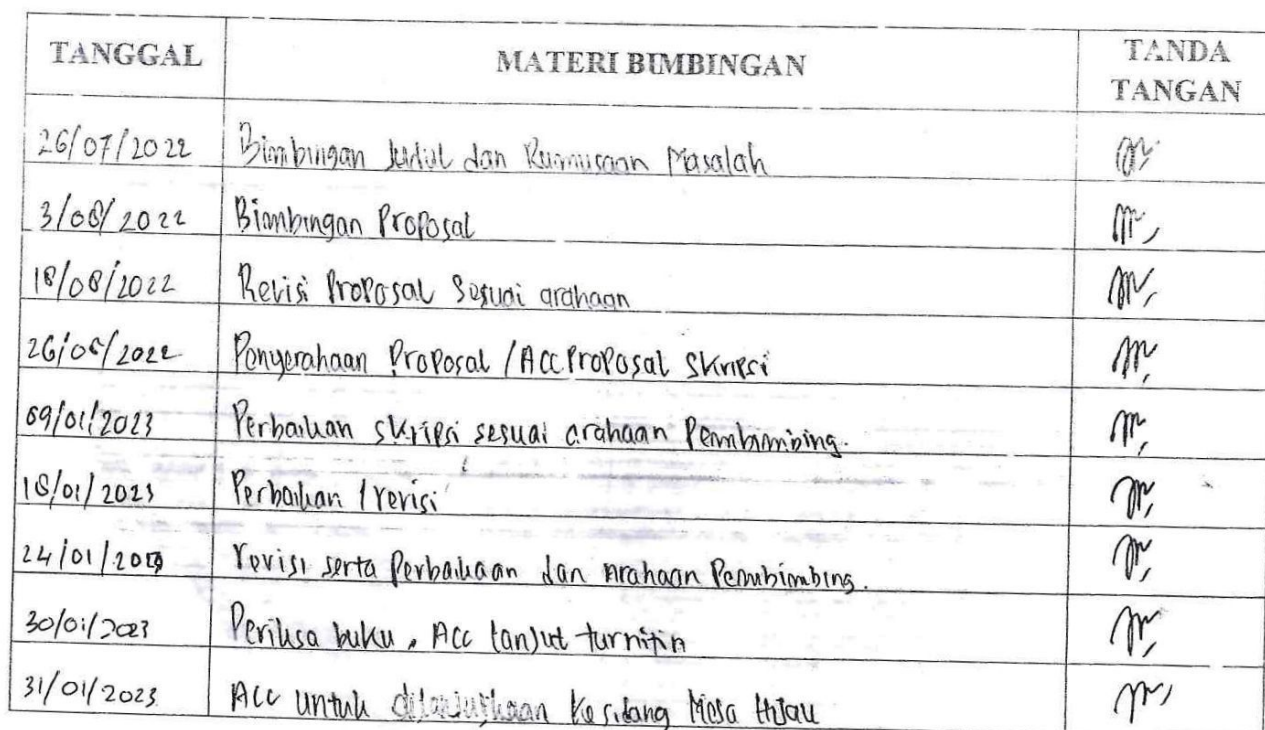 TANGGAL MATERI BIMBINGAN TANDA
TANGAN
26/07/2022 Bimbingan Judul dan Rumusaan Masalah
3/08/2022 Bimbingan Proposal
18/08/2022 Revisi Proposal Sesuai arahaan
26/08/2022 Penyerahaan Proposal / Acc Proposal Skripsi
09/01/2023 Perbaikan skripsi sesuai arahaan Pembimbing.
18/01/2023 Perbaikan / revisi
24/01/2023 revisi serta Perbaikaan dan Arahaan Pembimbing.
30/01/2023 Periksa buku, Acc lanjut turnitin
31/01/2023 Acc untuk dilanjutkaan Ke sidang Meja Hijau